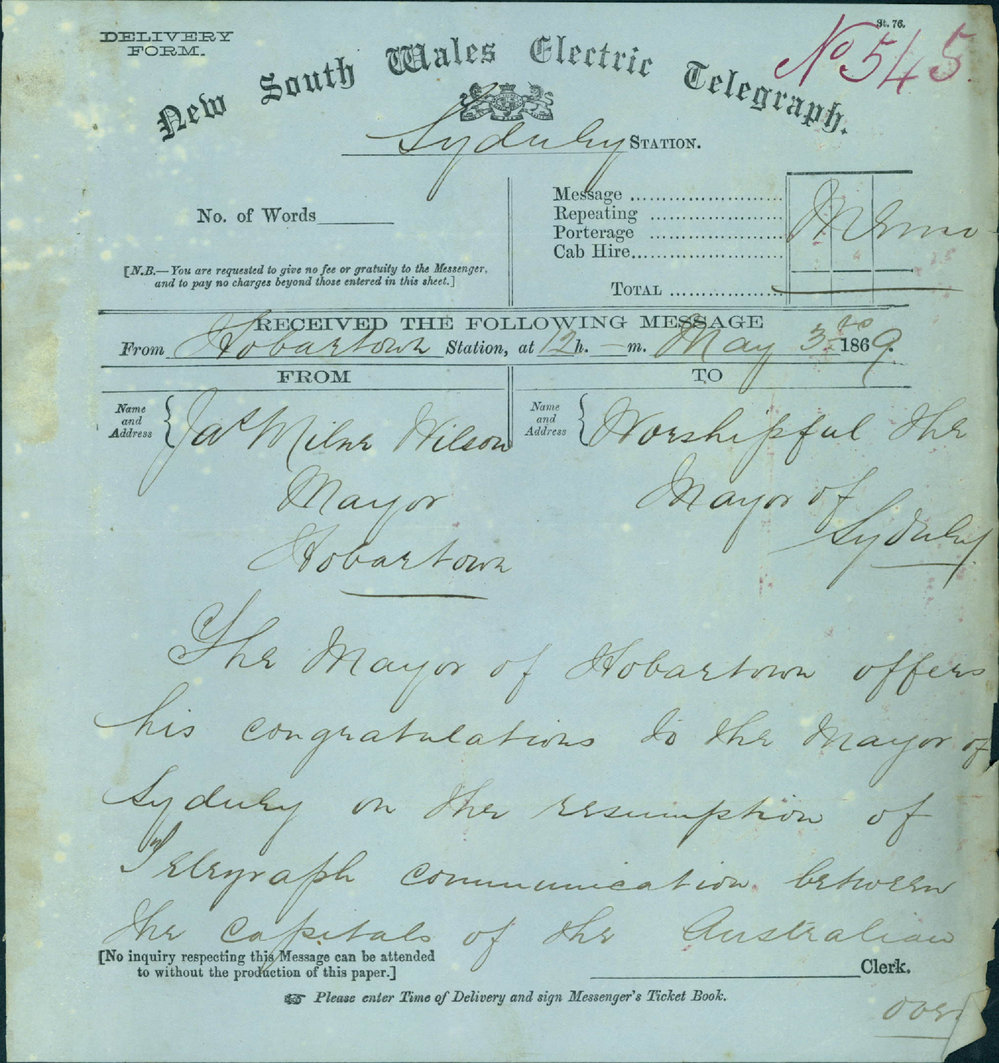 DELIVERY
FORM.
St. 76.
No 545
New South Wales Electric Telegraph.
Sydney STATION.
No. of Words
Message
Repeating
Porterage
Cab Hire
TOTAL
Memo
[N.B.—You are requested to give no fee or gratuity to the Messenger,
and to pay no charges beyond those entered in this sheet.]
RECEIVED THE FOLLOWING MESSAGE
From Hobartown Station, at 12 h. — m. May 3rd 1869.
FROM
TO
Name
and
Address
Jas Milne Wilson
Mayor
Hobartown
Name
and
Address
Worshipful the
Mayor of
Sydney
The Mayor of Hobartown offers
his congratulations to the Mayor of
Sydney on the resumption of
Telegraph communication between
the capitals of the Australian
[No inquiry respecting this Message can be attended
to without the production of this paper.]
Clerk.
☞ Please enter Time of Delivery and sign Messenger's Ticket Book.
over